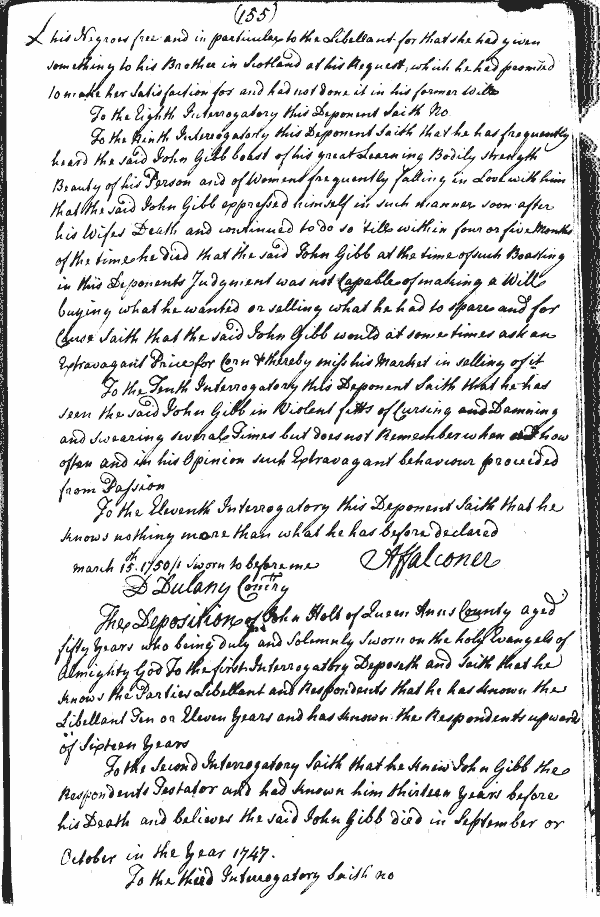 (155)
his Negroes free and in particular to the Libellant for that she had given
something to his Brother in Scotland at his Request, which he had promised
to make her Satisfaction for and had not done it in his former Will
To the Eighth Interrogatory this Deponent Saith No
To the Ninth Interrogatory this Deponent Saith that he has frequently
heard the said John Gibb boast of his great Learning Bodily strength
Beauty of his Person and of Women frequently falling in Love with him
that the said John Gibb expressed himself in such manner soon after
his Wifes Death and continued to do so 'till within four or five Months
of the time he died that the said John Gibb at the time of such Boasting
in this Deponents Judgment was not Capable of making a Will
buying what he wanted or selling what he had to spare and for
Cause Saith that the said John Gibb would at some times ask an
Extravagant Price for Corn & thereby miss his Market in selling of it
To the Tenth Interrogatory this Deponent Saith that he has
seen the said John Gibb in Violent fitts of Cursing and Damning
and swearing several Times but does not Remember when or how
often and in his Opinion such Extravagant behaviour proceeded
from Passion
To the Eleventh Interrogatory this Deponent Saith that he
knows nothing more than what he has before declared
march 15th. 1750/1 Sworn to before me AFfalconer
D Dulany Comry
The Deposition of John Holt of Queen Anns County aged
fifty Years who being duly and solemnly Sworn on the holy Evangels of
Almighty God To the first Interrogatory Deposeth and Saith that he
knows the Parties Libellant and Respondents that he has known the
Libellant Ten or Eleven Years and has known the Respondents upwards
of Sixteen Years
To the Second Interrogatory Saith that he knew John Gibb the
Respondents Testator and had known him thirteen Years before
his Death and believes the said John Gibb died in September or
October in the Year 1747.
To the third Interrogatory Saith no